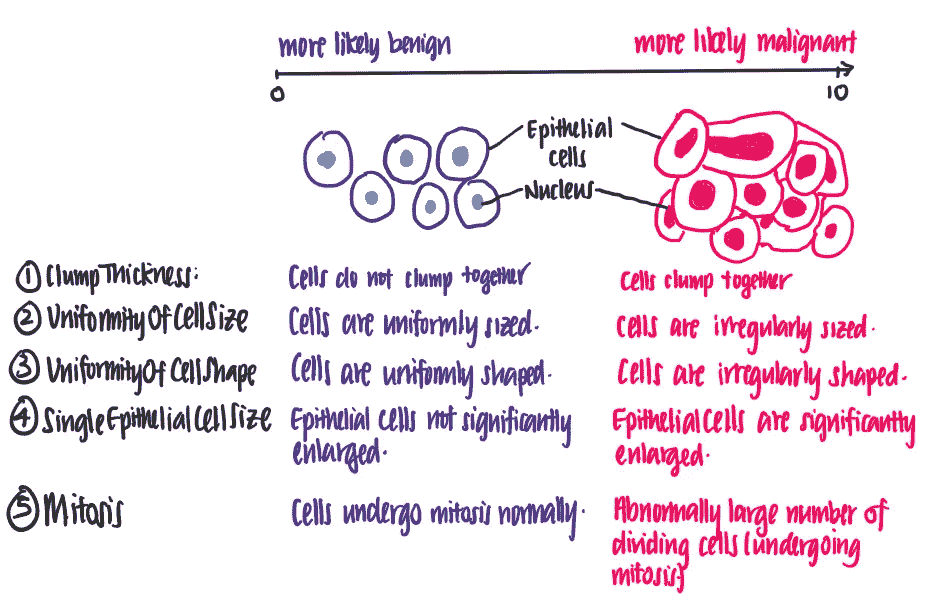 more likely benign
more likely malignant
0
10
Epithelial
cells
Nucleus
① Clump Thickness:
Cells do not clump together
Cells clump together
② UniformityOfCellSize
Cells are uniformly sized.
Cells are irregularly sized.
③ UniformityOfCellShape
Cells are uniformly shaped.
Cells are irregularly shaped.
④ SingleEpithelialCellSize
Epithelial cells not significantly
enlarged.
Epithelial Cells are significantly
enlarged.
⑤ Mitosis
Cells undergo mitosis normally.
Abnormally large number of
dividing cells (undergoing
mitosis)